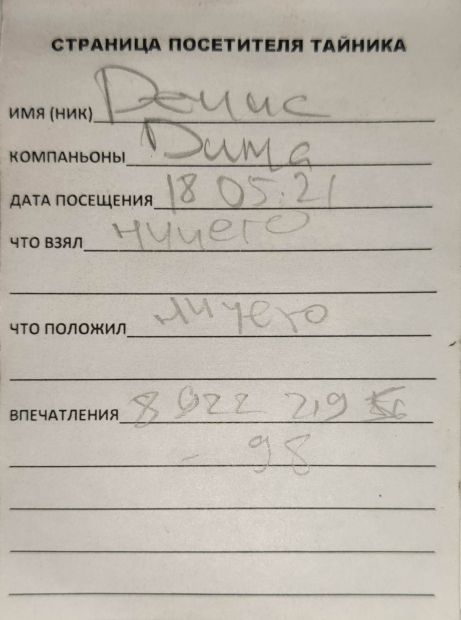 СТРАНИЦА ПОСЕТИТЕЛЯ ТАЙНИКА
ИМЯ (НИК) Денис
КОМПАНЬОНЫ Дима
ДАТА ПОСЕЩЕНИЯ 18 05.21
ЧТО ВЗЯЛ ничего
ЧТО ПОЛОЖИЛ ничего
ВПЕЧАТЛЕНИЯ 8 922 219
- 98